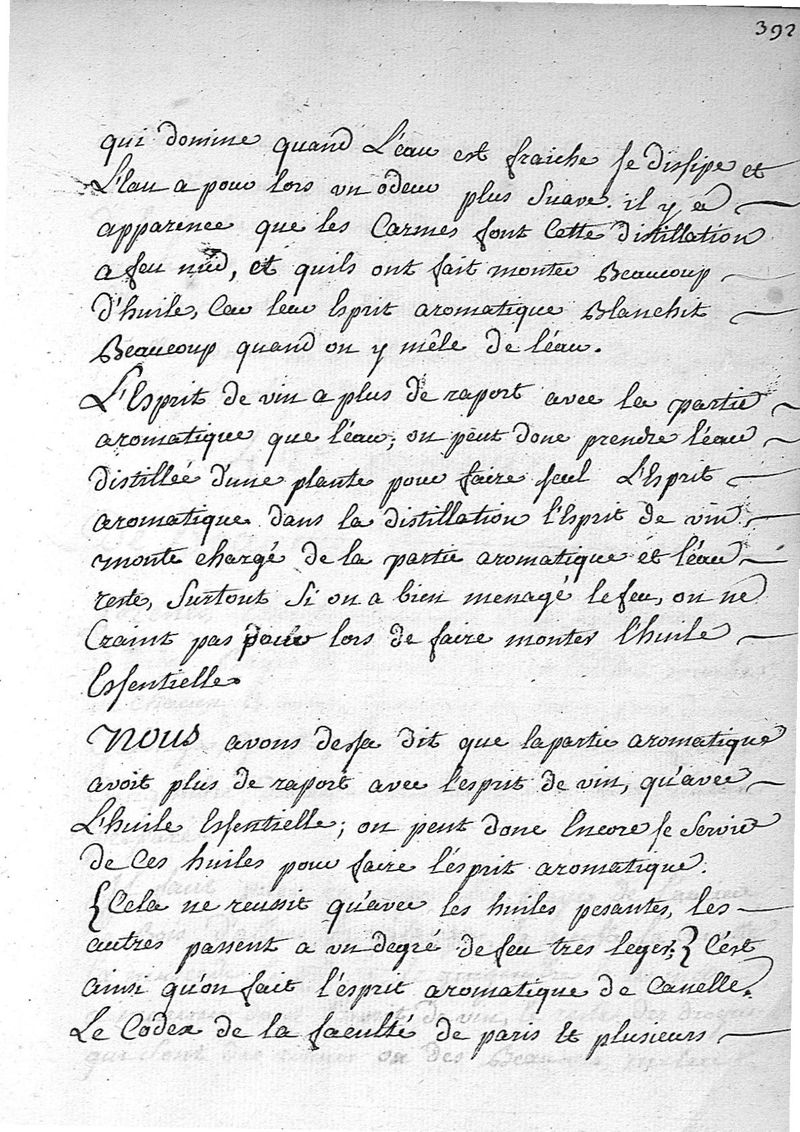 392
qui domine quand L'eau est fraiche se dissipe et
L'eau a pour lors un odeur plus suave. il y a
apparence que les Carmes font cette distillation
a feu nud, et quils ont fait monter Beaucoup
d'huile, Car leur Esprit aromatique Blanchit
Beaucoup quand on y mêle de l'eau.
L'Esprit de vin a plus de raport avec la partie
aromatique que l'eau; on peut donc prendre l'eau
distillée d'une plante pour faire seul L'Esprit
aromatique. dans la distillation l'Esprit de vin
monte chargé de la partie aromatique et l'eau
reste, surtout si on a bien menagé le feu, on ne
Craint pas pour lors de faire monter l'huile
Essentielle.
Nous avons deja dit que la partie aromatique
avoit plus de raport avec l'esprit de vin, qu'avec
L'huile Essentielle; on peut donc Encore se Servir
de Ces huiles pour faire l'esprit aromatique.
{Cela ne reussit qu'avec les huiles pesantes, les
autres passent a un degré de feu tres leger;} C'est
ainsi qu'on fait l'esprit aromatique de Canelle.
Le Codex de la faculté de paris Et plusieurs